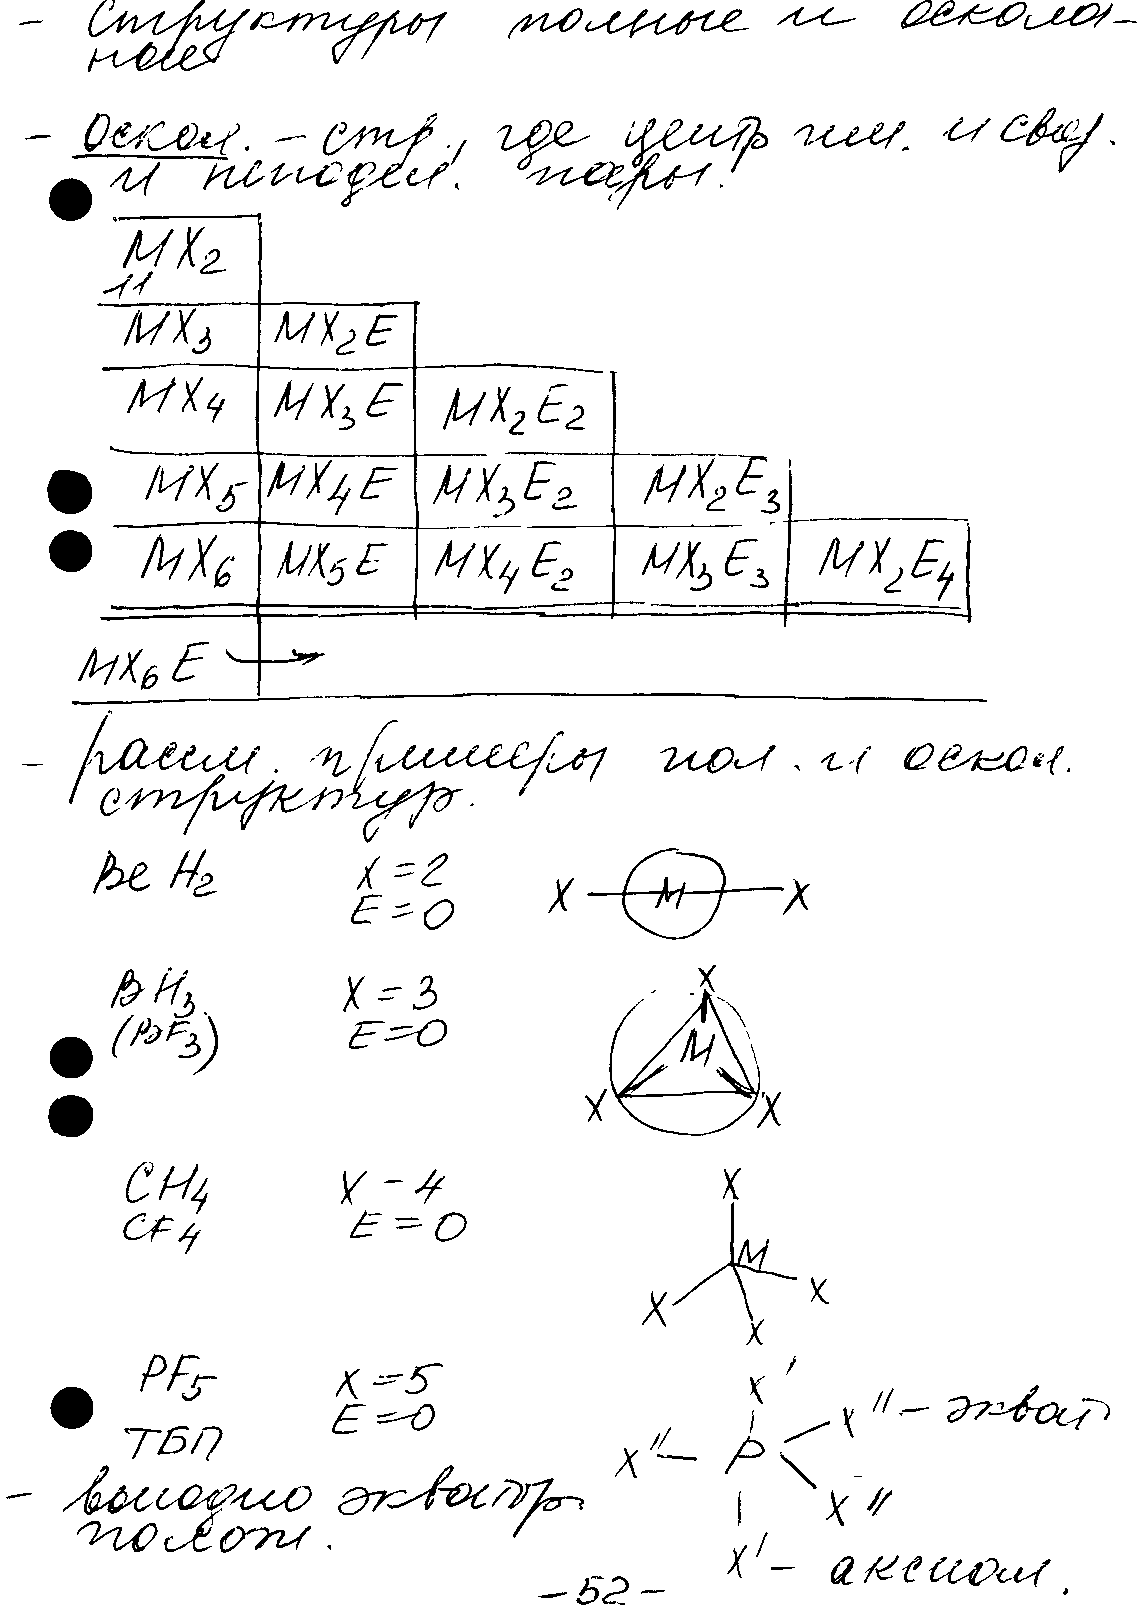 - Структуры полные и осколо-
ные
- Оскол. - стр., где центр им. и связ.
и неподел. пары.
MX2
11
MX3 MX2E
MX4 MX3E MX2E2
MX5 MX4E MX3E2 MX2E3
MX6 MX5E MX4E2 MX3E3 MX2E4
MX6E →
- рассм. примеры пол. и оскол.
структур.
BeH2 X=2 X M X
E=0
BH3 X=3 X
(BF3) E=0 M
X X
CH4 X-4 X
CF4 E=0 M
X X
X
PF5 X=5 X'
E=0 X" - экват
ТБП X" P
- выгодно экватор. X"
полож.
X' - аксиал.
-52-